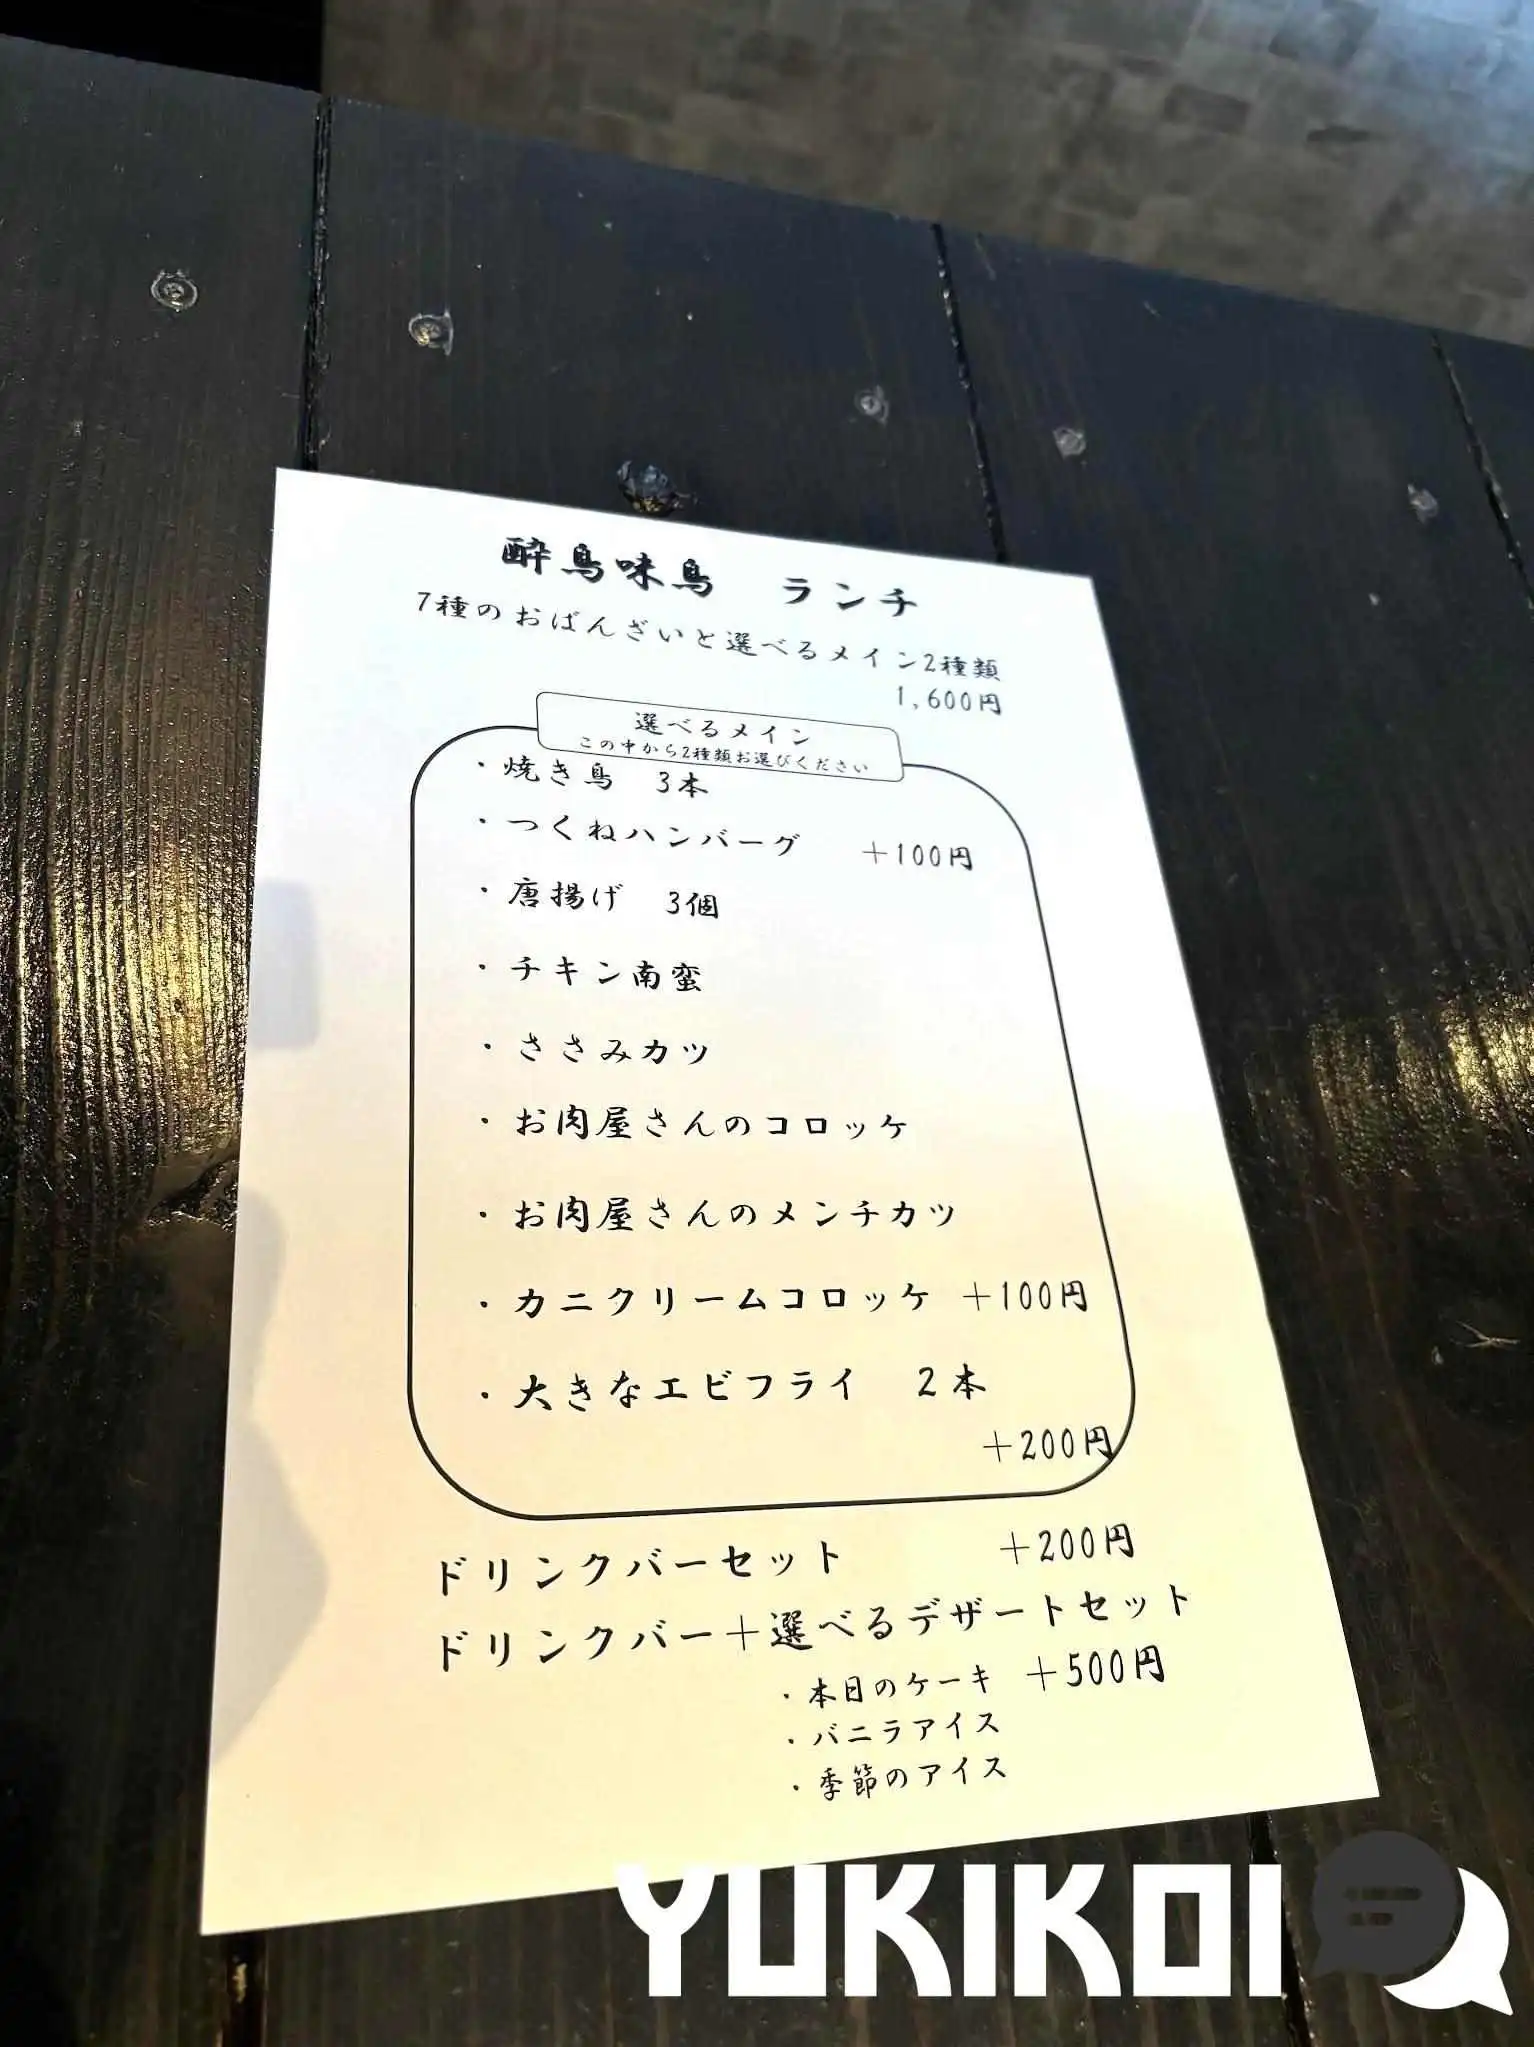 酔鳥味鳥　ランチ
7種のおばんざいと選べるメイン2種類
1,600円
選べるメイン
この中から2種類お選びください
・焼き鳥　3本
・つくねハンバーグ　＋100円
・唐揚げ　3個
・チキン南蛮
・ささみカツ
・お肉屋さんのコロッケ
・お肉屋さんのメンチカツ
・カニクリームコロッケ　＋100円
・大きなエビフライ　2本
＋200円
ドリンクバーセット　＋200円
ドリンクバー＋選べるデザートセット
・本日のケーキ　＋500円
・バニラアイス
・季節のアイス
YUKIKOI